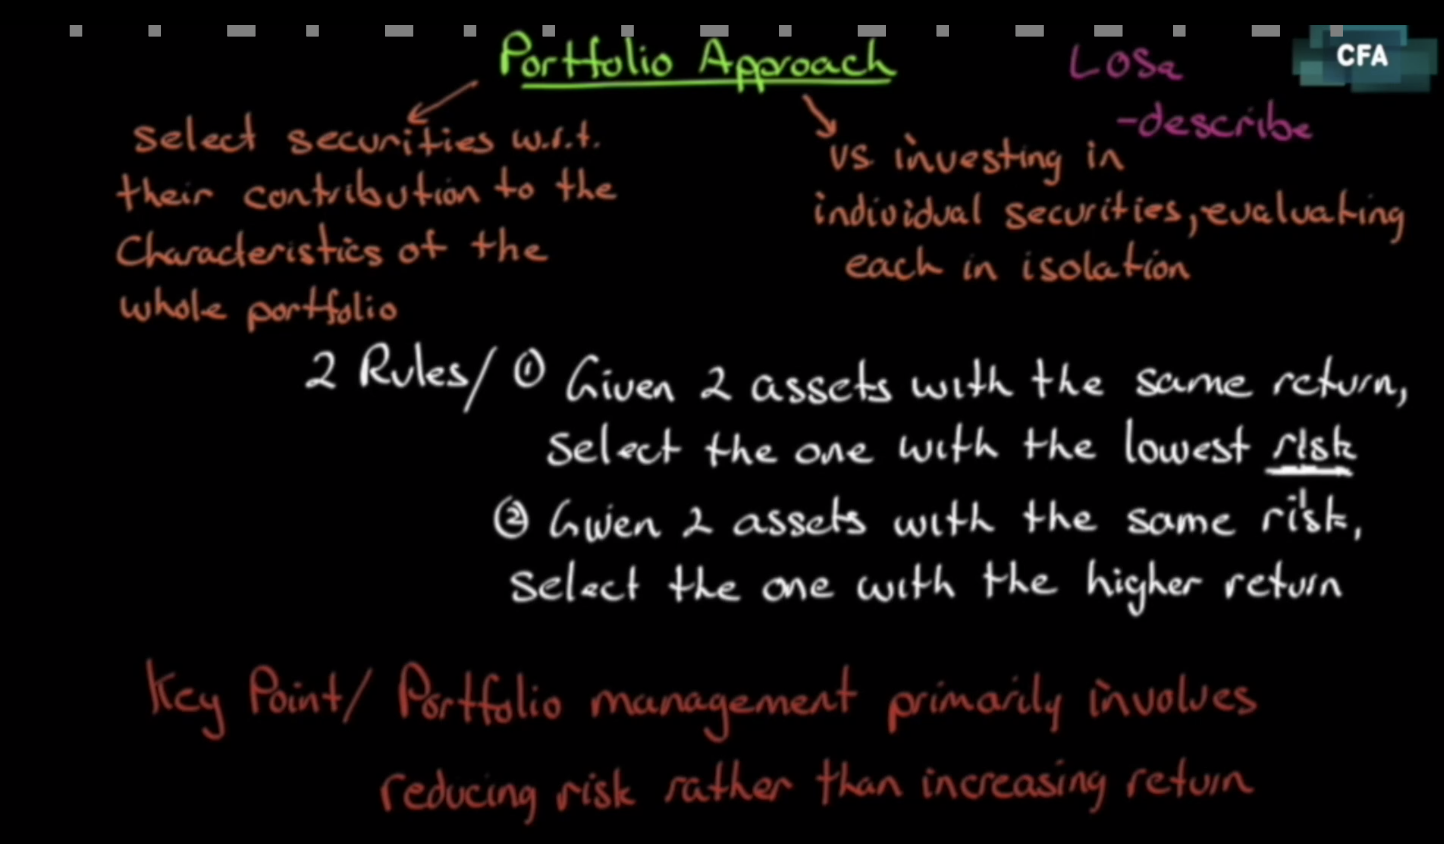 Portfolio Approach
LOSa
CFA
-describe
Select securities w.r.t.
their contribution to the
Characteristics of the
whole portfolio
vs investing in
individual securities, evaluating
each in isolation
2 Rules/ ① Given 2 assets with the same return,
Select the one with the lowest risk
② Given 2 assets with the same risk,
Select the one with the higher return
Key Point/ Portfolio management primarily involves
reducing risk rather than increasing return